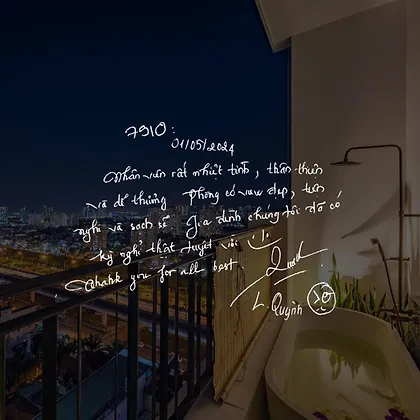 7910:
01/05/2024
Nhân viên rất nhiệt tình, thân thiện
và dễ thương Phòng có view đẹp, tiện
nghi và sạch sẽ Gia đình chúng tôi đã có
kỳ nghỉ thật tuyệt vời
Thank you for all best.
L Quỳnh